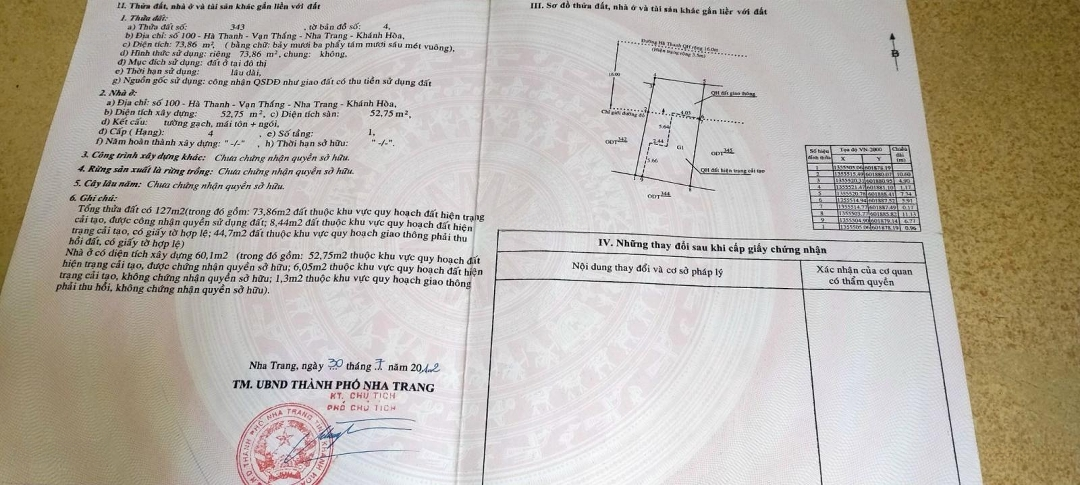 II. Thửa đất, nhà ở và tài sản khác gắn liền với đất
1. Thửa đất:
a) Thửa đất số: 343 , tờ bản đồ số: 4,
b) Địa chỉ: số 100 - Hà Thanh - Vạn Thắng - Nha Trang - Khánh Hòa,
c) Diện tích: 73,86 m², ( bằng chữ: bảy mươi ba phẩy tám mươi sáu mét vuông),
d) Hình thức sử dụng: riêng 73,86 m², chung: không,
đ) Mục đích sử dụng: đất ở tại đô thị
e) Thời hạn sử dụng: lâu dài,
g) Nguồn gốc sử dụng: công nhận QSDĐ như giao đất có thu tiền sử dụng đất
2. Nhà ở:
a) Địa chỉ: số 100 - Hà Thanh - Vạn Thắng - Nha Trang - Khánh Hòa,
b) Diện tích xây dựng: 52,75 m², c) Diện tích sàn: 52,75 m²,
d) Kết cấu: tường gạch, mái tôn + ngói,
đ) Cấp ( Hạng): 4 , e) Số tầng: 1,
f) Năm hoàn thành xây dựng: " -/-" , h) Thời hạn sở hữu: " -/-".
3. Công trình xây dựng khác: Chưa chứng nhận quyền sở hữu.
4. Rừng sản xuất là rừng trồng: Chưa chứng nhận quyền sở hữu.
5. Cây lâu năm: Chưa chứng nhận quyền sở hữu.
6. Ghi chú:
Tổng thửa đất có 127m2(trong đó gồm: 73,86m2 đất thuộc khu vực quy hoạch đất hiện trạng
cải tạo, được công nhận quyền sử dụng đất; 8,44m2 đất thuộc khu vực quy hoạch đất hiện
trạng cải tạo, có giấy tờ hợp lệ; 44,7m2 đất thuộc khu vực quy hoạch giao thông phải thu
hồi đất, có giấy tờ hợp lệ)
Nhà ở có diện tích xây dựng 60,1m2 (trong đó gồm: 52,75m2 thuộc khu vực quy hoạch đất
hiện trạng cải tạo, được chứng nhận quyền sở hữu; 6,05m2 thuộc khu vực quy hoạch đất hiện
trạng cải tạo, không chứng nhận quyền sở hữu; 1,3m2 thuộc khu vực quy hoạch giao thông
phải thu hồi, không chứng nhận quyền sở hữu).
Nha Trang, ngày 30 tháng 7 năm 2012
TM. UBND THÀNH PHỐ NHA TRANG
KT. CHỦ TỊCH
PHÓ CHỦ TỊCH
III. Sơ đồ thửa đất, nhà ở và tài sản khác gắn liền với đất
B
Đường Hà Thanh QH rộng 16.0m
(Hiện trạng rộng 3.5m)
16.00
QH đất giao thông
Chỉ giới đường đỏ
4.03
5.64
ODT 342
2.44
G1
ODT 345
5.66
QH đất hiện trạng cải tạo
ODT 344
Số hiệu đỉnh thửa Tọa độ VN-2000 Chiều dài (m)
X Y
IV. Những thay đổi sau khi cấp giấy chứng nhận
Nội dung thay đổi và cơ sở pháp lý
Xác nhận của cơ quan
có thẩm quyền